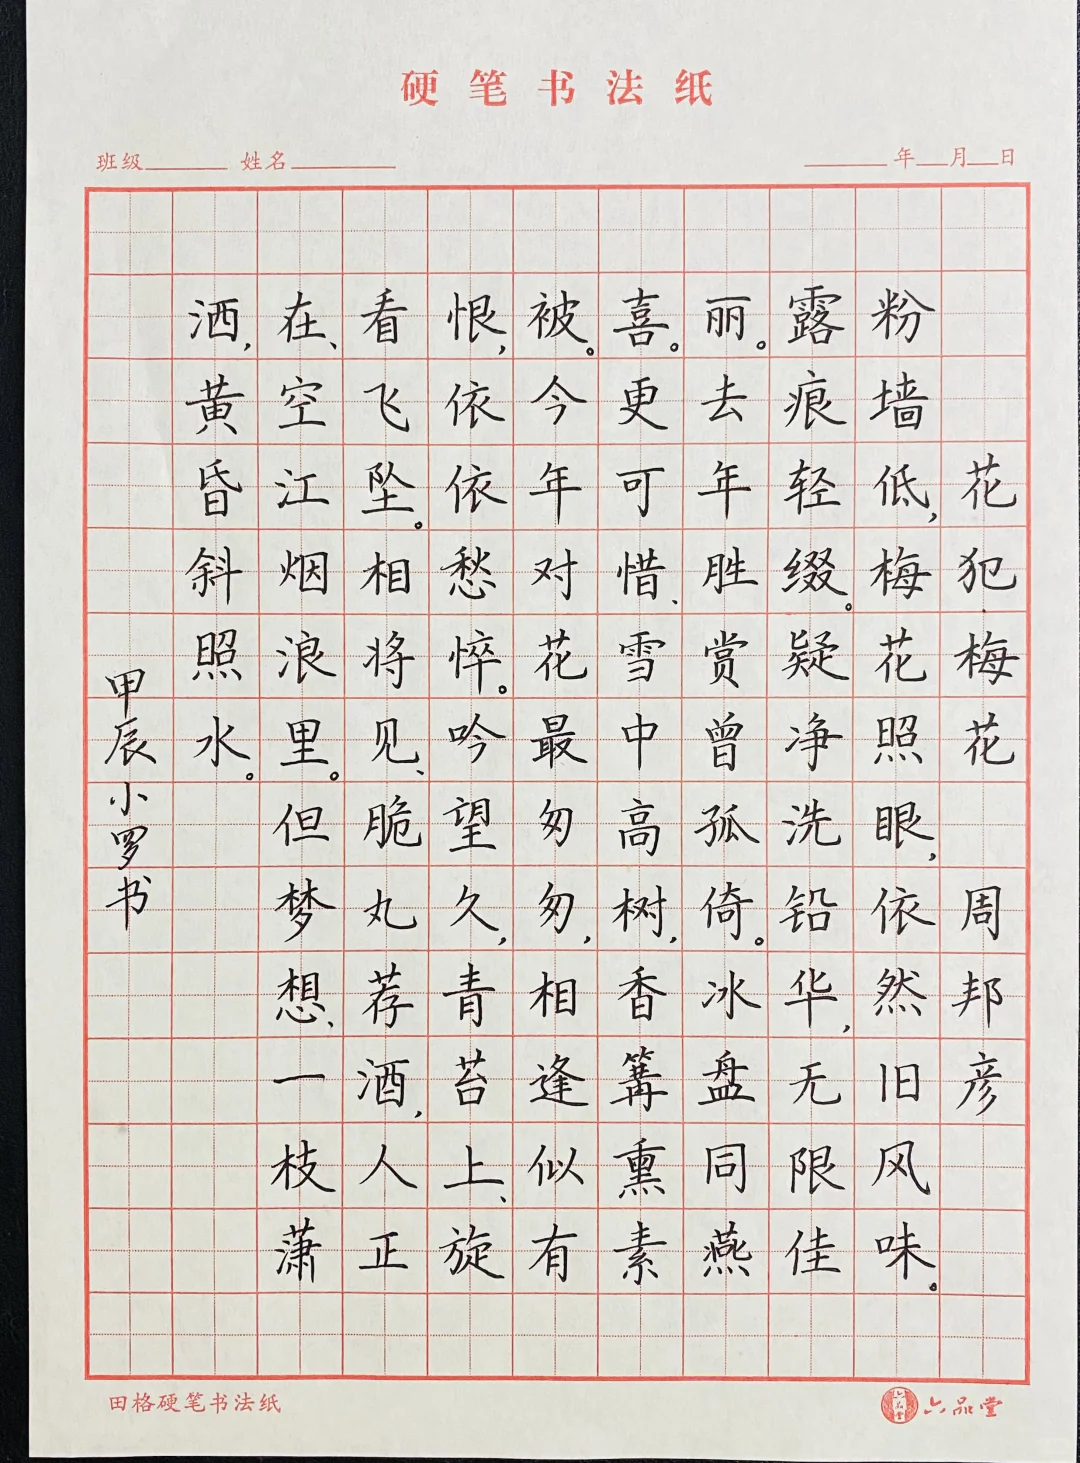 硬笔书法纸
班级 姓名 年 月 日
花犯·梅花 周邦彦
粉墙低,梅花照眼,依然旧风味。
露痕轻缀。疑净洗铅华,无限佳
丽。去年胜赏曾孤倚。冰盘同燕
喜。更可惜、雪中高树,香篝熏素
被。今年对花最匆匆,相逢似有
恨,依依愁悴。吟望久,青苔上、旋
看飞坠。相将见、脆丸荐酒,人正
在、空江烟浪里。但梦想、一枝潇
洒,黄昏斜照水。
甲辰小罗书
田格硬笔书法纸
六品堂
六品堂